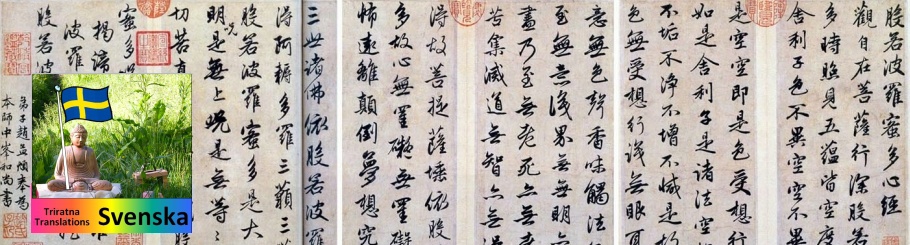 般若波羅蜜多心經
觀自在菩薩行深般若
多時照見五蘊皆空度
舍利子色不異空空不
是空即是色受想行
如是舍利子是諸法空
不垢不淨不增不減是故
色無受想行識無眼
意無色聲香味觸法
至無意識界無無明
盡乃至無老死亦無
苦集滅道無智亦無
得故菩提薩埵依般
多故心無罣礙無罣礙
怖遠離顛倒夢想究
三世諸佛依般若波羅
得阿耨多羅三藐三
般若波羅蜜多是大
明呪是無上呪是無等
切苦真
蜜多
揭諦
波羅
般若
弟子趙孟頫奉為
本師中峯和尚書
Triratna
Translations
Svenska